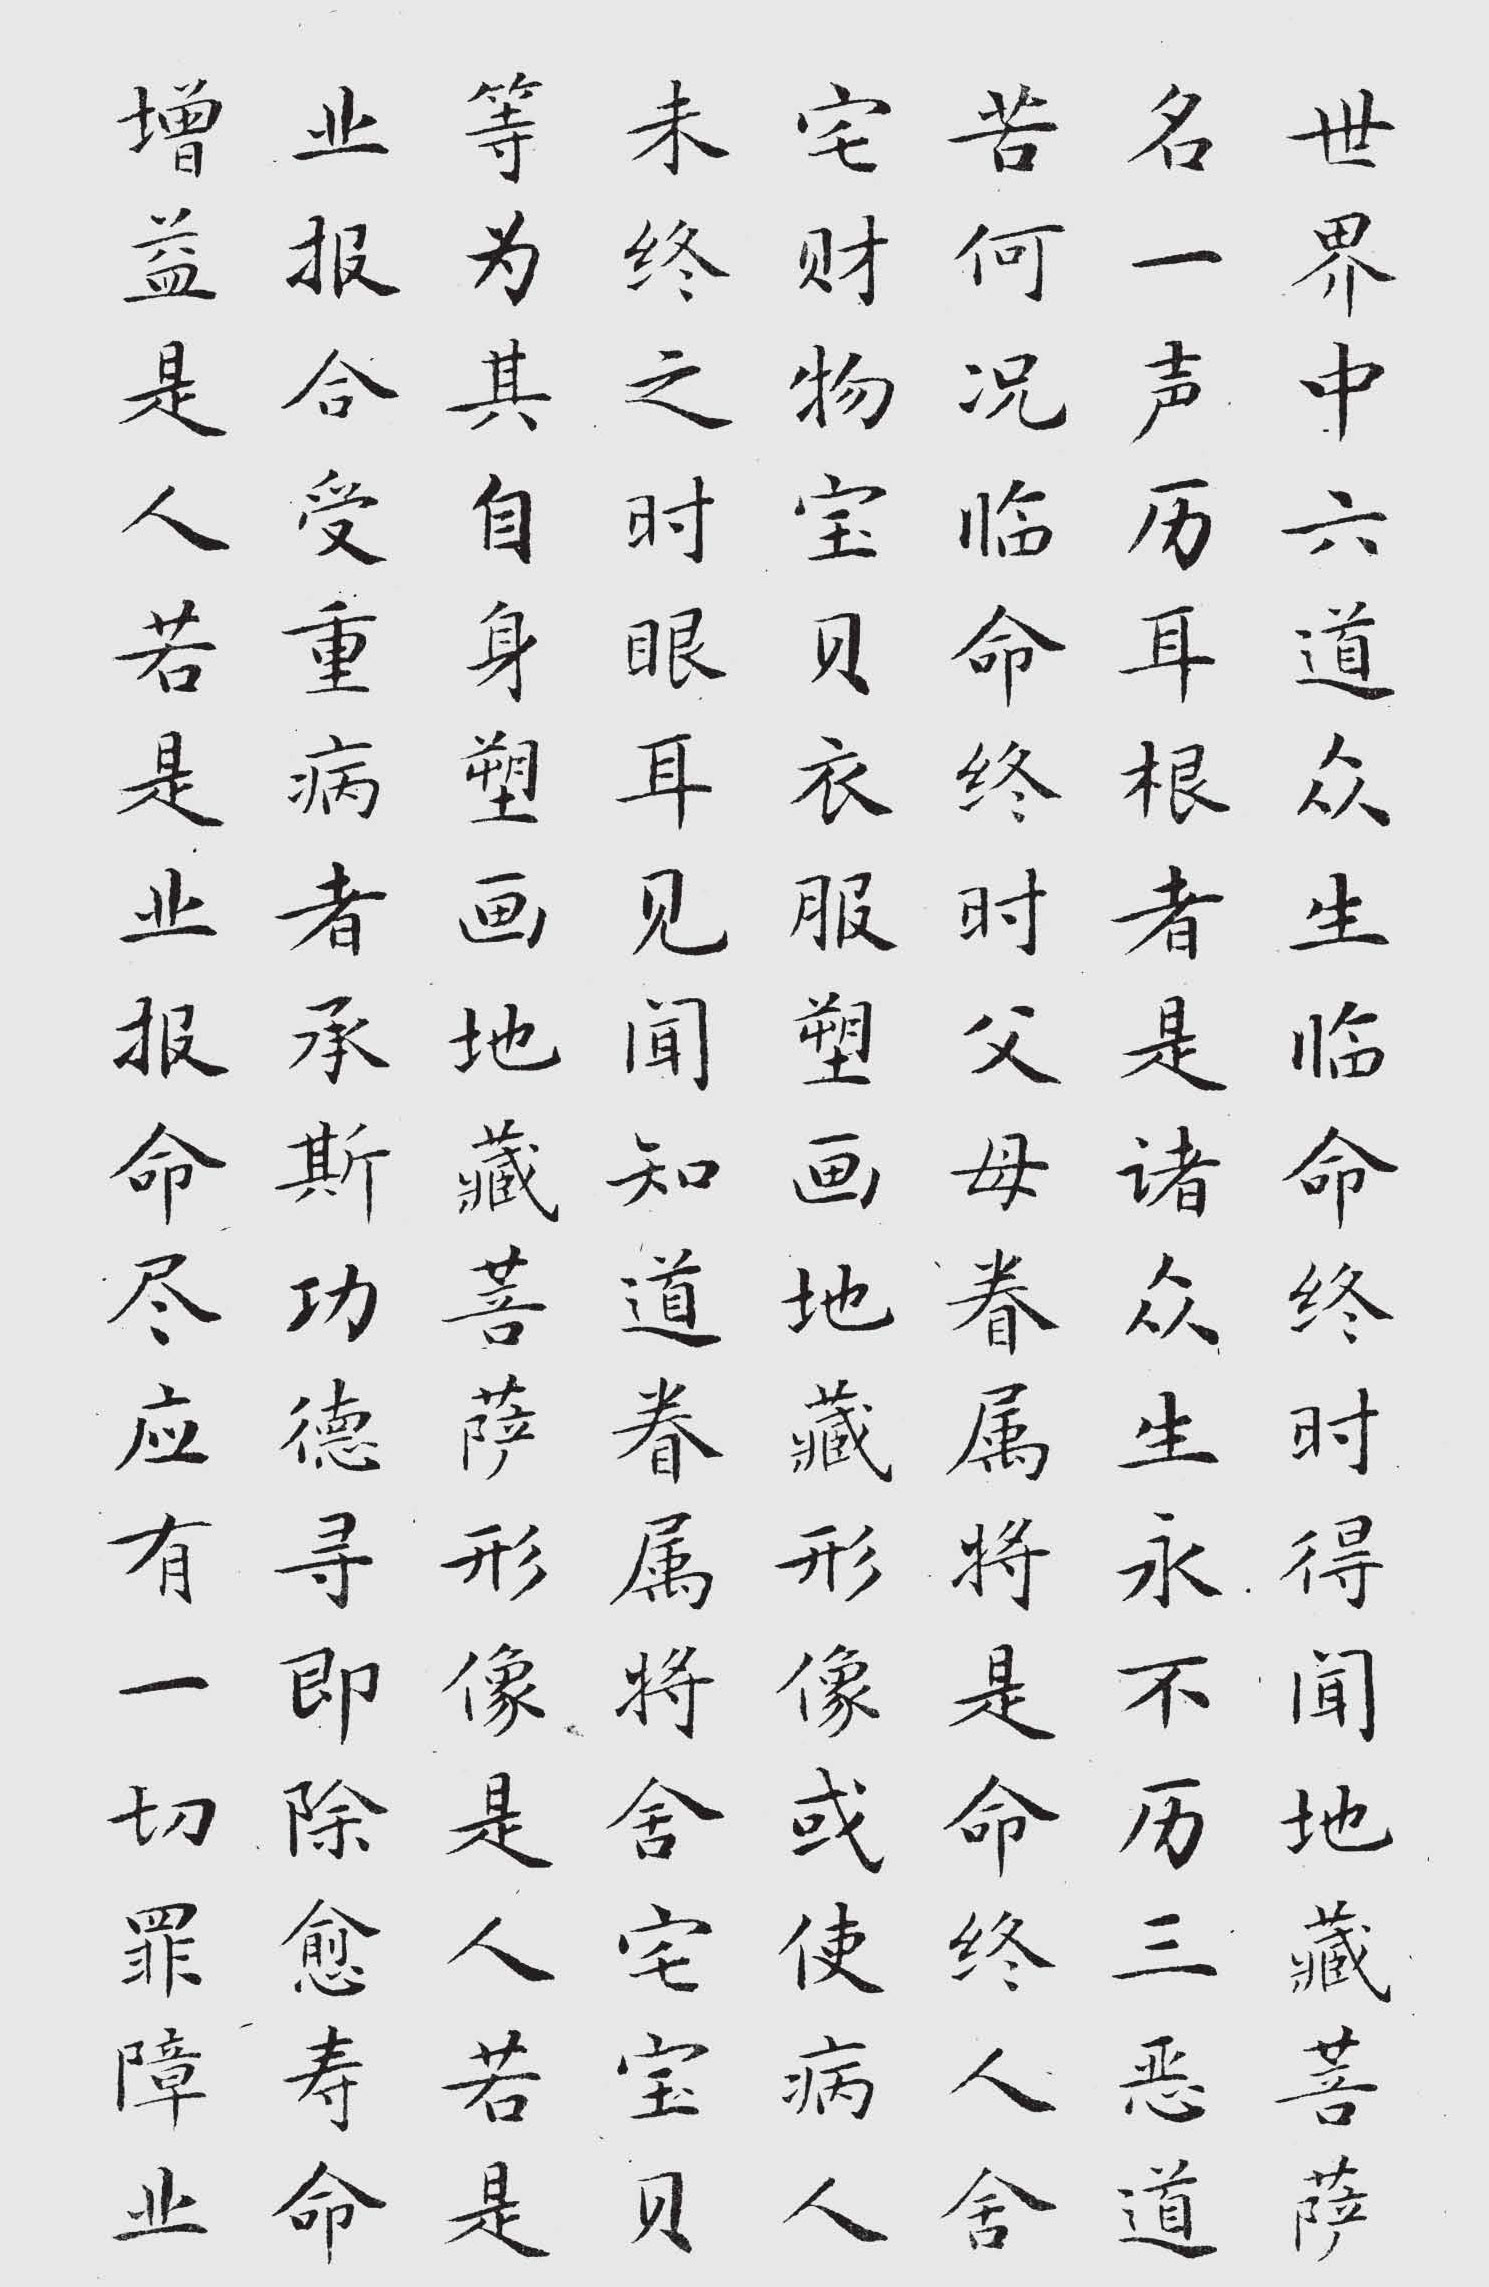 世界中六道众生临命终时得闻地藏菩萨
名一声历耳根者是诸众生永不历三恶道
苦何况临命终时父母眷属将是命终人舍
宅财物宝贝衣服塑画地藏形像或使病人
未终之时眼耳见闻知道眷属将舍宅宝贝
等为其自身塑画地藏菩萨形像是人若是
业报合受重病者承斯功德寻即除愈寿命
增益是人若是业报命尽应有一切罪障业